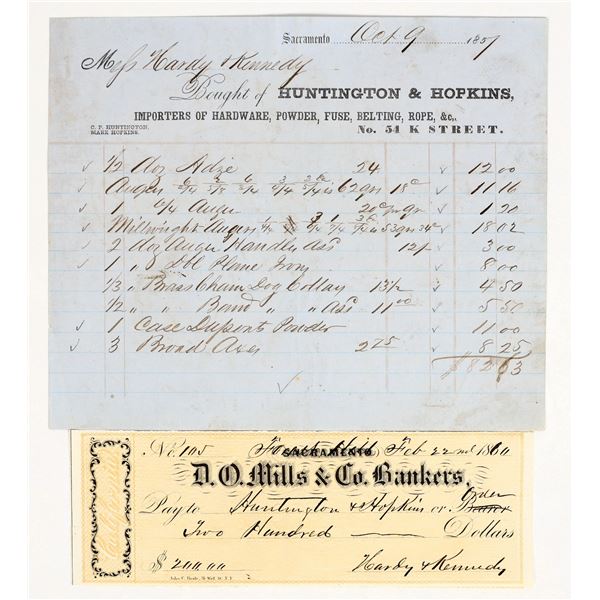 Sacramento Oct 9 1857
Mess Hardy & Kennedy
Bought of HUNTINGTON & HOPKINS,
IMPORTERS OF HARDWARE, POWDER, FUSE, BELTING, ROPE, &c.,
C. P. HUNTINGTON,
MARK HOPKINS.
No. 54 K STREET.
1/2 Doz Adze 24 12 00
Augers 62 qrs 18c 11 16
1 6/4 Auger 20 qrs 1 20
Millwright Augers 53 qrs 34c 18 02
2 doz Auger Handles Asd 12/ 3 00
1 " Dbl Plane Irons 8 00
1/3 " Brass Chain Dog Collars 13 1/2 4 50
1/2 " " Band " " Asd 11 00 5 50
1 Case Duponts Powder 11 00
3 Broad Axes 2 75 8 25
$82 63
No. 105 Forest Hill SACRAMENTO Feb 22nd 1860
D. O. Mills & Co. Bankers,
Pay to Huntington & Hopkins or Bearer Order
Two Hundred Dollars
$ 200.00 Hardy & Kennedy